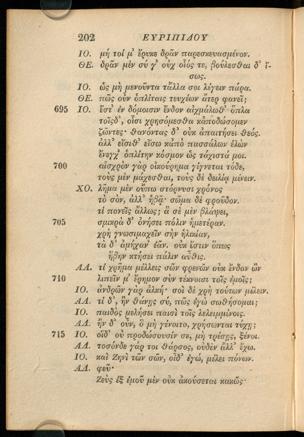 202 ΕΥΡΙΠΙΔΟΥ
ΙΟ. μή τοί μ' ἔρυκε δρᾶν παρεσκευασμένον.
ΘΕ. δρᾶν μὲν σύ γ' οὐχ οἷός τε, βούλεσθαι δ' ἴ-
σως.
ΙΟ. ὡς μὴ μενοῦντα τἄλλα σοι λέγειν πάρα.
ΘΕ. πῶς οὖν ὁπλίταις τευχέων ἄτερ φανεῖ;
695 ΙΟ. ἔστ' ἐν δόμοισιν ἔνδον αἰχμάλωθ' ὅπλα
τοῖσδ', οἷσι χρησόμεσθα κἀποδώσομεν
ζῶντες· θανόντας δ' οὐκ ἀπαιτήσει θεός.
ἀλλ' εἴσιθ' εἴσω κἀπὸ πασσάλων ἑλὼν
ἔνεγχ' ὁπλίτην κόσμον ὡς τάχιστά μοι.
700 αἰσχρὸν γὰρ οἰκούρημα γίγνεται τόδε,
τοὺς μὲν μάχεσθαι, τοὺς δὲ δειλίᾳ μένειν.
ΧΟ. λῆμα μὲν οὔπω στόρνυσι χρόνος
τὸ σὸν, ἀλλ' ἡβᾷ· σῶμα δὲ φροῦδον.
τί πονεῖς ἄλλως; ἃ σὲ μὲν βλάψει,
705 σμικρὰ δ' ὀνήσει πόλιν ἡμετέραν.
χρὴ γνωσιμαχεῖν σὴν ἡλικίαν,
τὰ δ' ἀμήχαν' ἐᾶν. οὐκ ἔστιν ὅπως
ἥβην κτήσει πάλιν αὖθις.
ΑΛ. τί χρῆμα μέλλεις σῶν φρενῶν οὐκ ἔνδον ὢν
710 λιπεῖν μ' ἔρημον σὺν τέκνοισι τοῖς ἐμοῖς;
ΙΟ. ἀνδρῶν γὰρ ἀλκή· σοὶ δὲ χρὴ τούτων μέλειν.
ΑΛ. τί δ', ἢν θάνῃς σύ, πῶς ἐγὼ σωθήσομαι;
ΙΟ. παιδὸς μελήσει παισὶ τοῖς λελειμμένοις.
ΑΛ. ἢν δ' οὖν, ὃ μὴ γένοιτο, χρήσωνται τύχῃ;
715 ΙΟ. οἵδ' οὐ προδώσουσίν σε, μὴ τρέσῃς, ξένοι.
ΑΛ. τοσόνδε γάρ τοι θάρσος, οὐδὲν ἄλλ' ἔχω.
ΙΟ. καὶ Ζηνὶ τῶν σῶν, οἶδ' ἐγώ, μέλει πόνων.
ΑΛ. φεῦ·
Ζεὺς ἐξ ἐμοῦ μὲν οὐκ ἀκούσεται κακῶς·